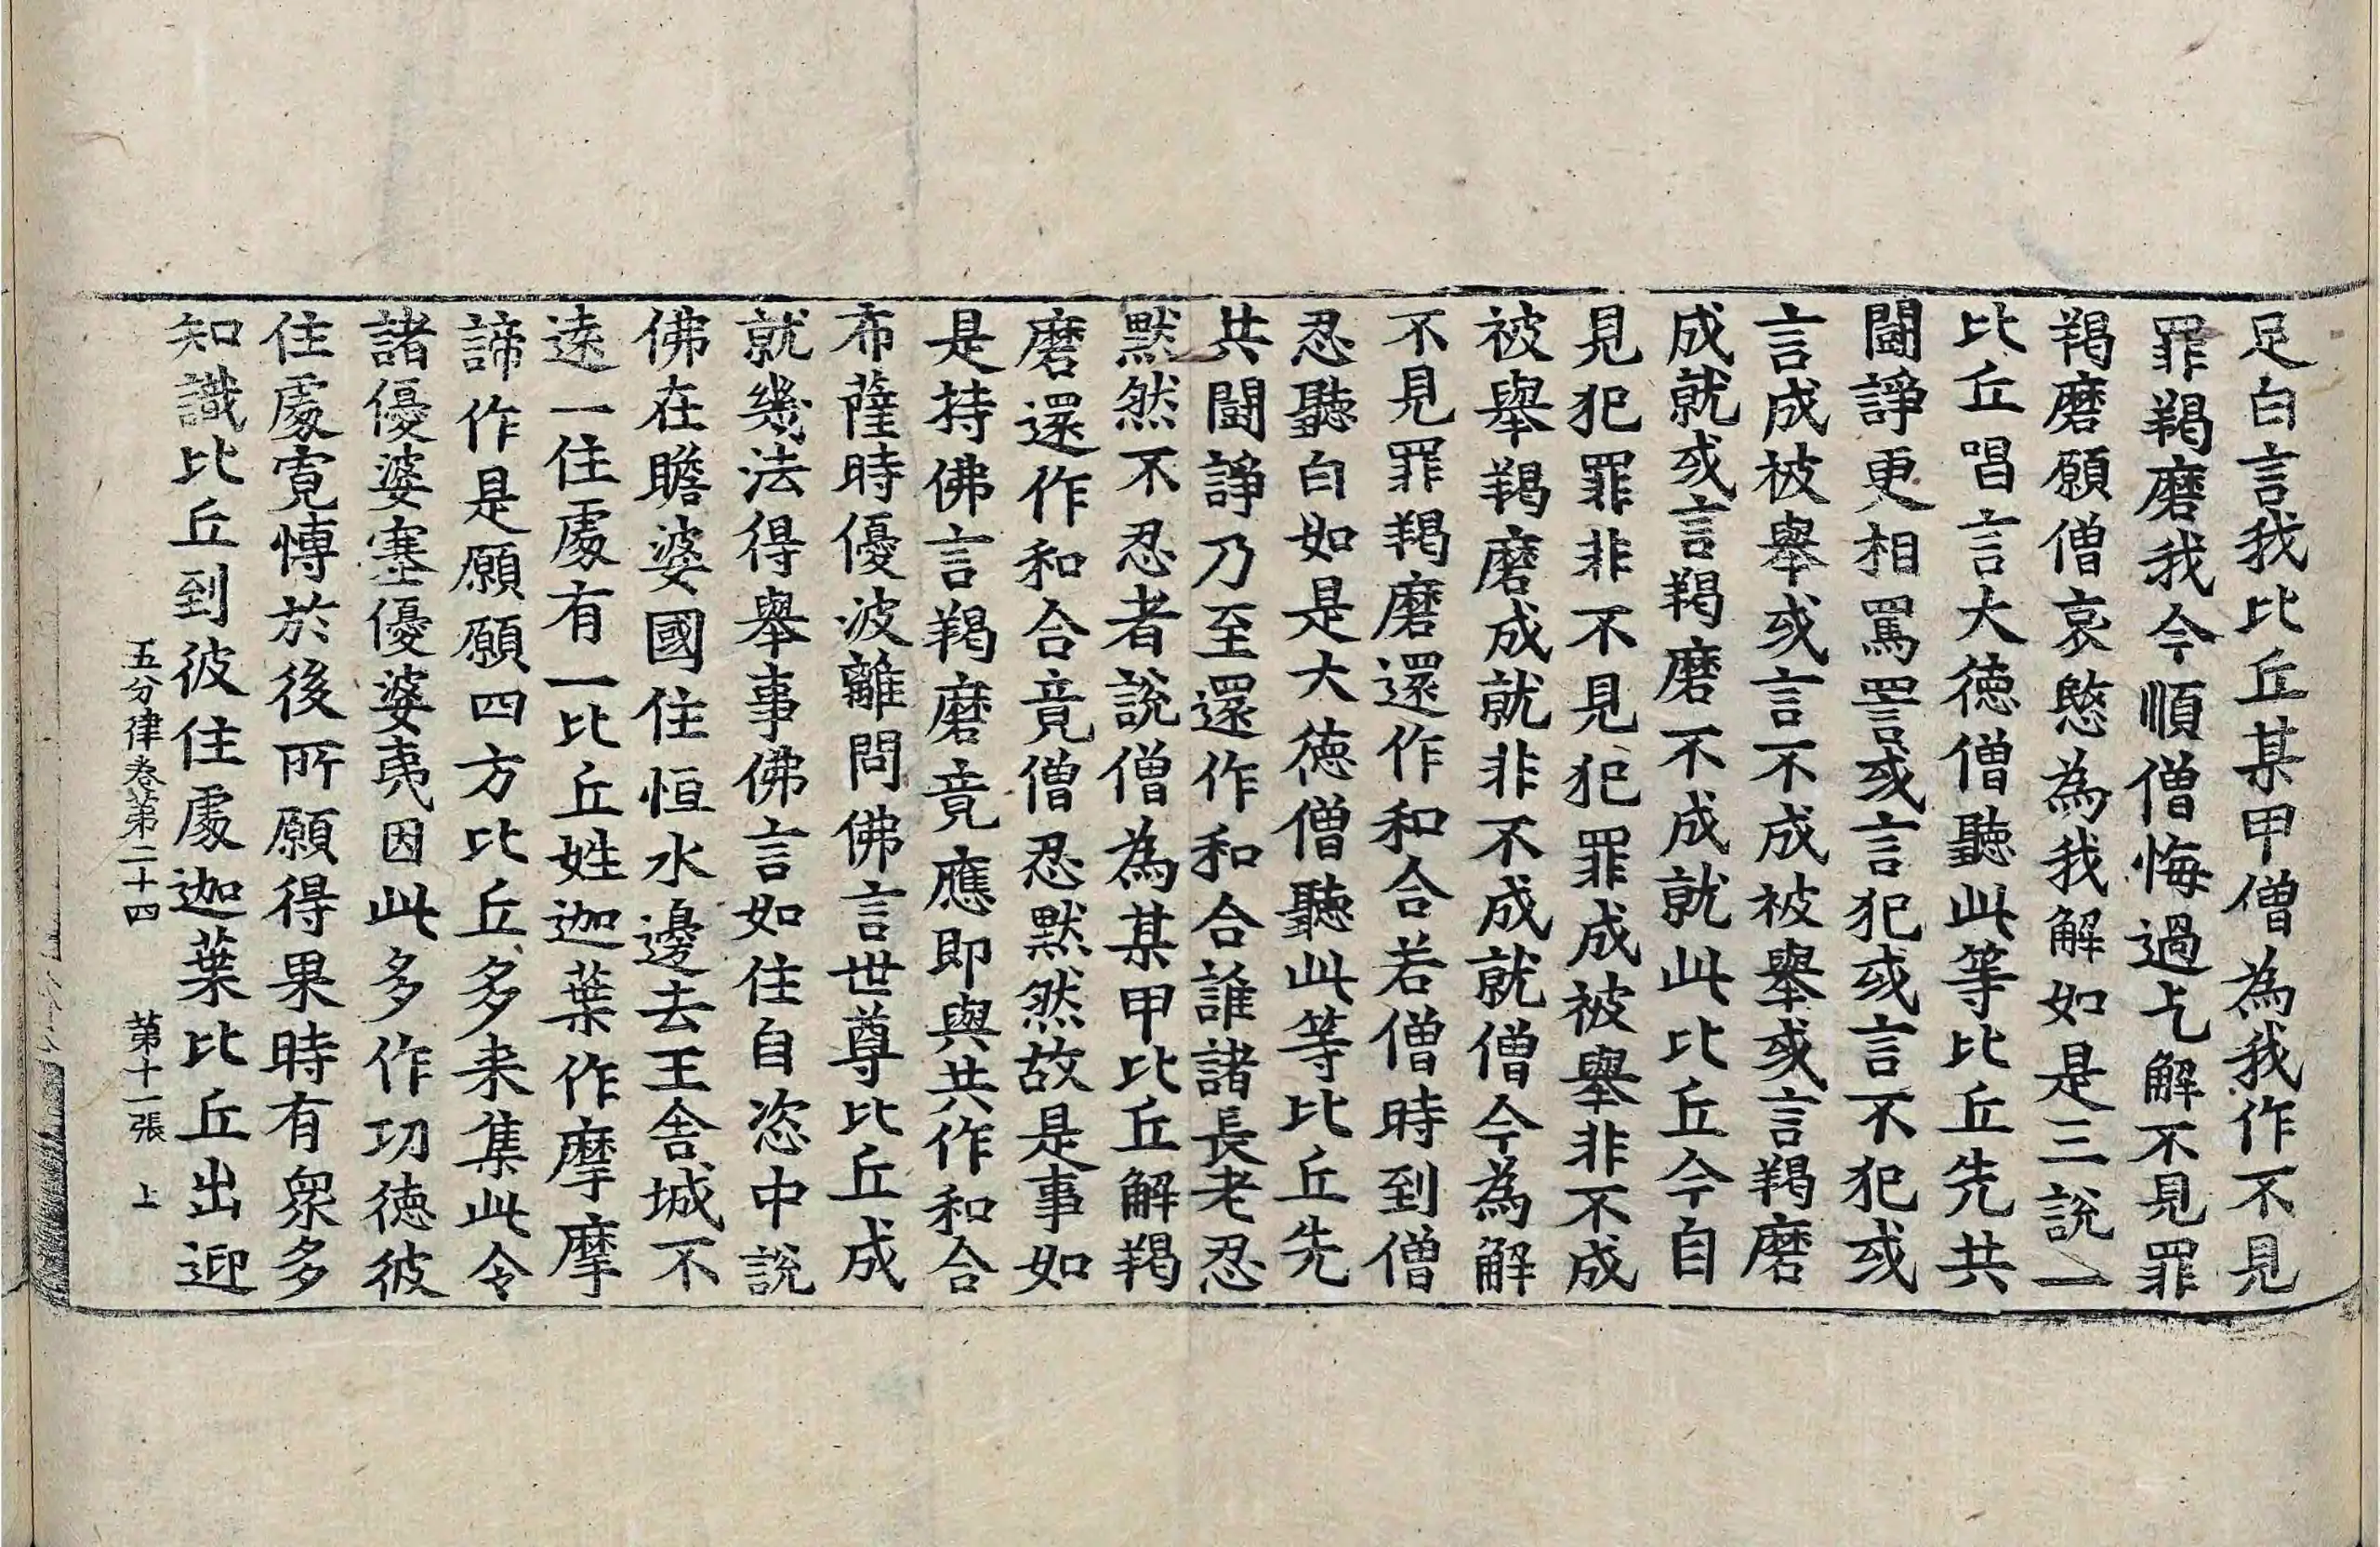 足白言我比丘某甲僧為我作不見
罪羯磨我今順僧悔過乞解不見罪
羯磨願僧哀愍為我解如是三說一
比丘唱言大德僧聽此等比丘先共
鬪諍更相罵詈或言犯或言不犯或
言成被舉或言不成被舉或言羯磨
成就或言羯磨不成就此比丘今自
見犯罪非不見犯罪成被舉非不成
被舉羯磨成就非不成就僧今為解
不見罪羯磨還作和合若僧時到僧
忍聽白如是大德僧聽此等比丘先
共鬪諍乃至還作和合誰諸長老忍
默然不忍者說僧為某甲比丘解羯
磨還作和合竟僧忍默然故是事如
是持佛言羯磨竟應即與共作和合
布薩時優波離問佛言世尊比丘成
就幾法得舉事佛言如住自恣中說
佛在瞻婆國住恒水邊去王舍城不
遠一住處有一比丘姓迦葉作摩摩
諦作是願願四方比丘多来集此令
諸優婆塞優婆夷因此多作功德彼
住處寬博於後所願得果時有衆多
知識比丘到彼住處迦葉比丘出迎
五分律卷第二十四 第十一張 上